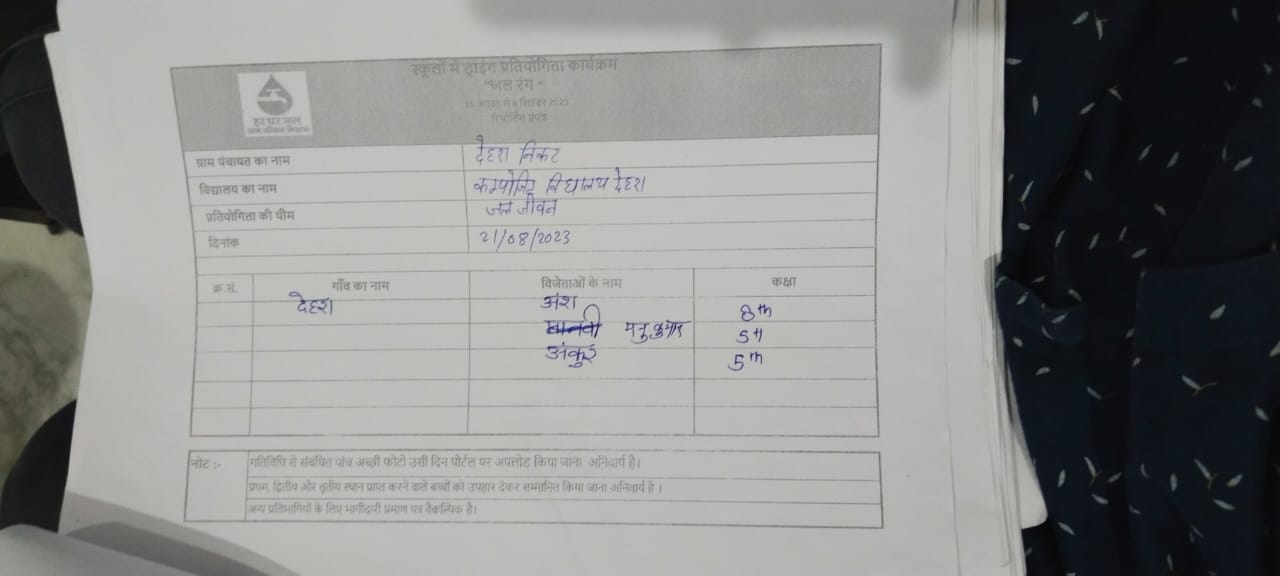 स्कूलों में ड्राइंग प्रतियोगिता कार्यक्रम
"जल रंग"
हर घर जल
जल जीवन मिशन
रिपोर्टिंग प्रपत्र
ग्राम पंचायत का नाम देहरा निकट
विद्यालय का नाम कम्पोजिट विद्यालय देहरा
प्रतियोगिता की थीम जल जीवन
दिनांक 21/08/2023
क्र.सं. गाँव का नाम विजेताओं के नाम कक्षा
देहरा अंश 8th
मनु कुमार 5th
अंकुर 5th
नोट :- गतिविधि से संबंधित पांच अच्छी फोटो उसी दिन पोर्टल पर अपलोड किया जाना अनिवार्य है।
प्रथम, द्वितीय और तृतीय स्थान प्राप्त करने वाले बच्चों को उपहार देकर सम्मानित किया जाना अनिवार्य है ।
अन्य प्रतिभागियों के लिए भागीदारी प्रमाण पत्र वैकल्पिक है।